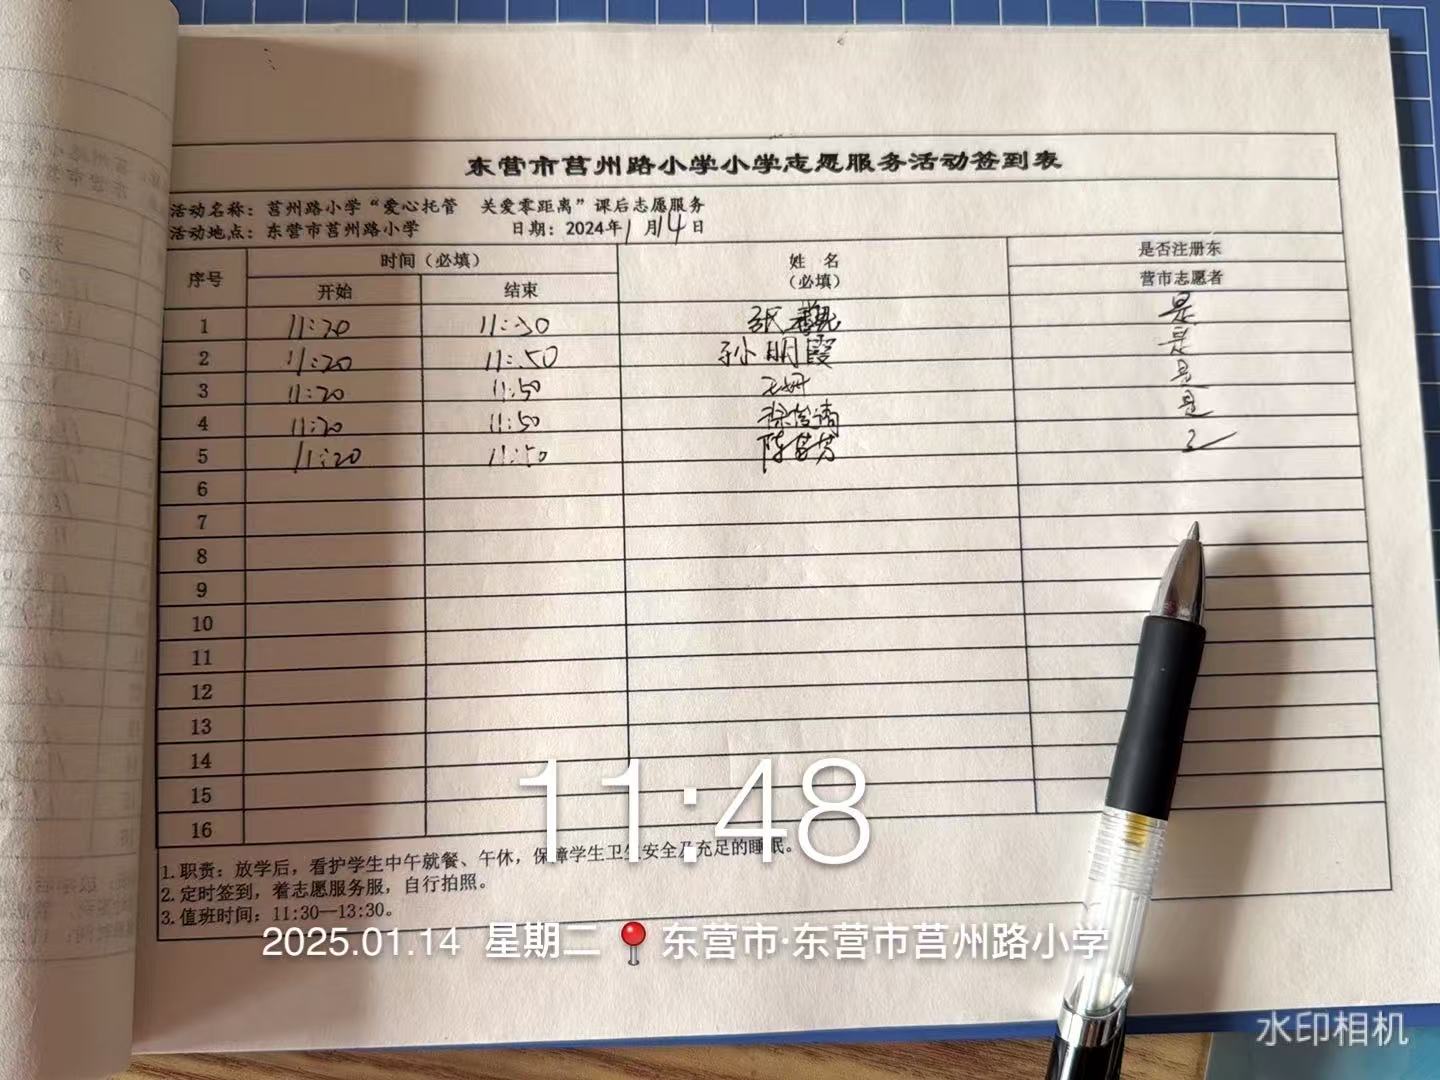 东营市莒州路小学小学志愿服务活动签到表
活动名称：莒州路小学“爱心托管 关爱零距离”课后志愿服务
活动地点：东营市莒州路小学 日期：2024年1月14日
序号 时间（必填） 姓 名（必填） 是否注册东营市志愿者
开始 结束
1 11:20 11:50 张 是
2 11:20 11:50 孙明霞 是
3 11:20 11:50 王姗 是
4 11:20 11:50 徐俊清 是
5 11:20 11:50 陈芳
6
7
8
9
10
11
12
13
14
15
16
1.职责：放学后，看护学生中午就餐、午休，保障学生卫生安全及充足的睡眠。
2.定时签到，着志愿服务服，自行拍照。
3.值班时间：11:30—13:30。
11:48
2025.01.14 星期二 东营市·东营市莒州路小学
水印相机